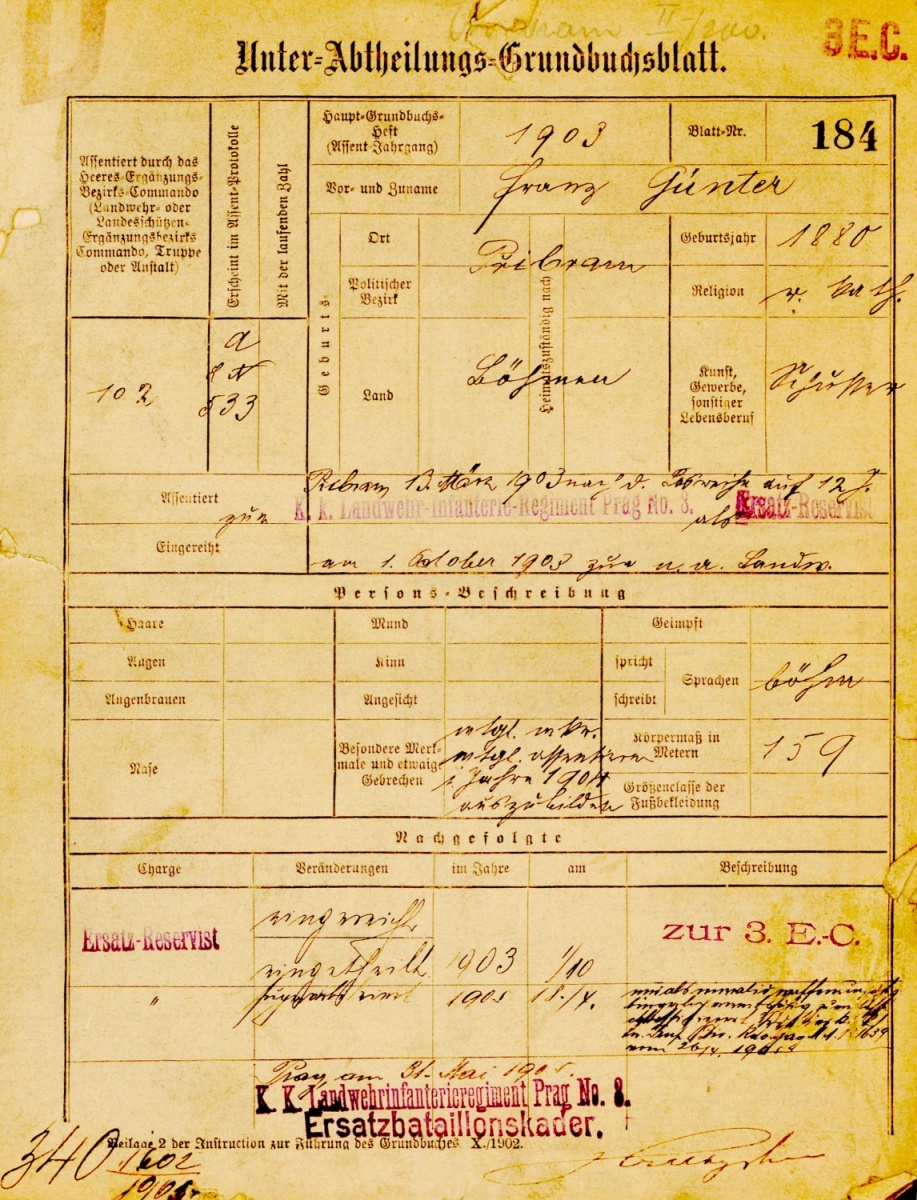 II/200.
3 E.C.
Unter-Abtheilungs-Grundbuchsblatt.
Assentiert durch das
Heeres-Ergänzungs-
Bezirks-Commando
(Landwehr- oder
Landesschützen-
Ergänzungsbezirks
Commando, Truppe
oder Anstalt)
Erscheint im Assent-Protokolle
Mit der laufenden Zahl
Haupt-Grundbuchs-
Heft
(Assent-Jahrgang)
1903
Blatt-Nr.
184
Vor- und Zuname
Franz Günter
Geburts-
Ort
Pribram
Geburtsjahr
1880
Politischer
Bezirk
Heimatszuständig nach
Religion
r. kath.
102
a
533
Land
Böhmen
Kunst,
Gewerbe,
sonstiger
Lebensberuf
Schuster
Assentiert
Pribram 13. März 1903 auf 12 J.
zur
K. k. Landwehr-Infanterie-Regiment Prag No. 8.
als
Ersatz-Reservist
Eingereiht
am 1. October 1903 zur n. a. Landw.
Persons-Beschreibung
Haare
Mund
Geimpft
Augen
Kinn
spricht
Sprachen
böhm
Augenbrauen
Angesicht
schreibt
Nase
Besondere Merk-
male und etwaige
Gebrechen
assentiert
i. Jahre 1904
auszubilden
Körpermaß in
Metern
159
Größenclasse der
Fußbekleidung
Nachgefolgte
Charge
Veränderungen
im Jahre
am
Beschreibung
Ersatz-Reservist
eingereiht
zur 3. E.-C.
eingetheilt
1903
1/10
"
superarbitriert
1905
18./4.
Prag, am 31. Mai 1905.
K. K. Landwehrinfanterieregiment Prag No. 8.
Ersatzbataillonskader.
Beilage 2 der Instruction zur Führung des Grundbuches X./1902.
340
1602
1905